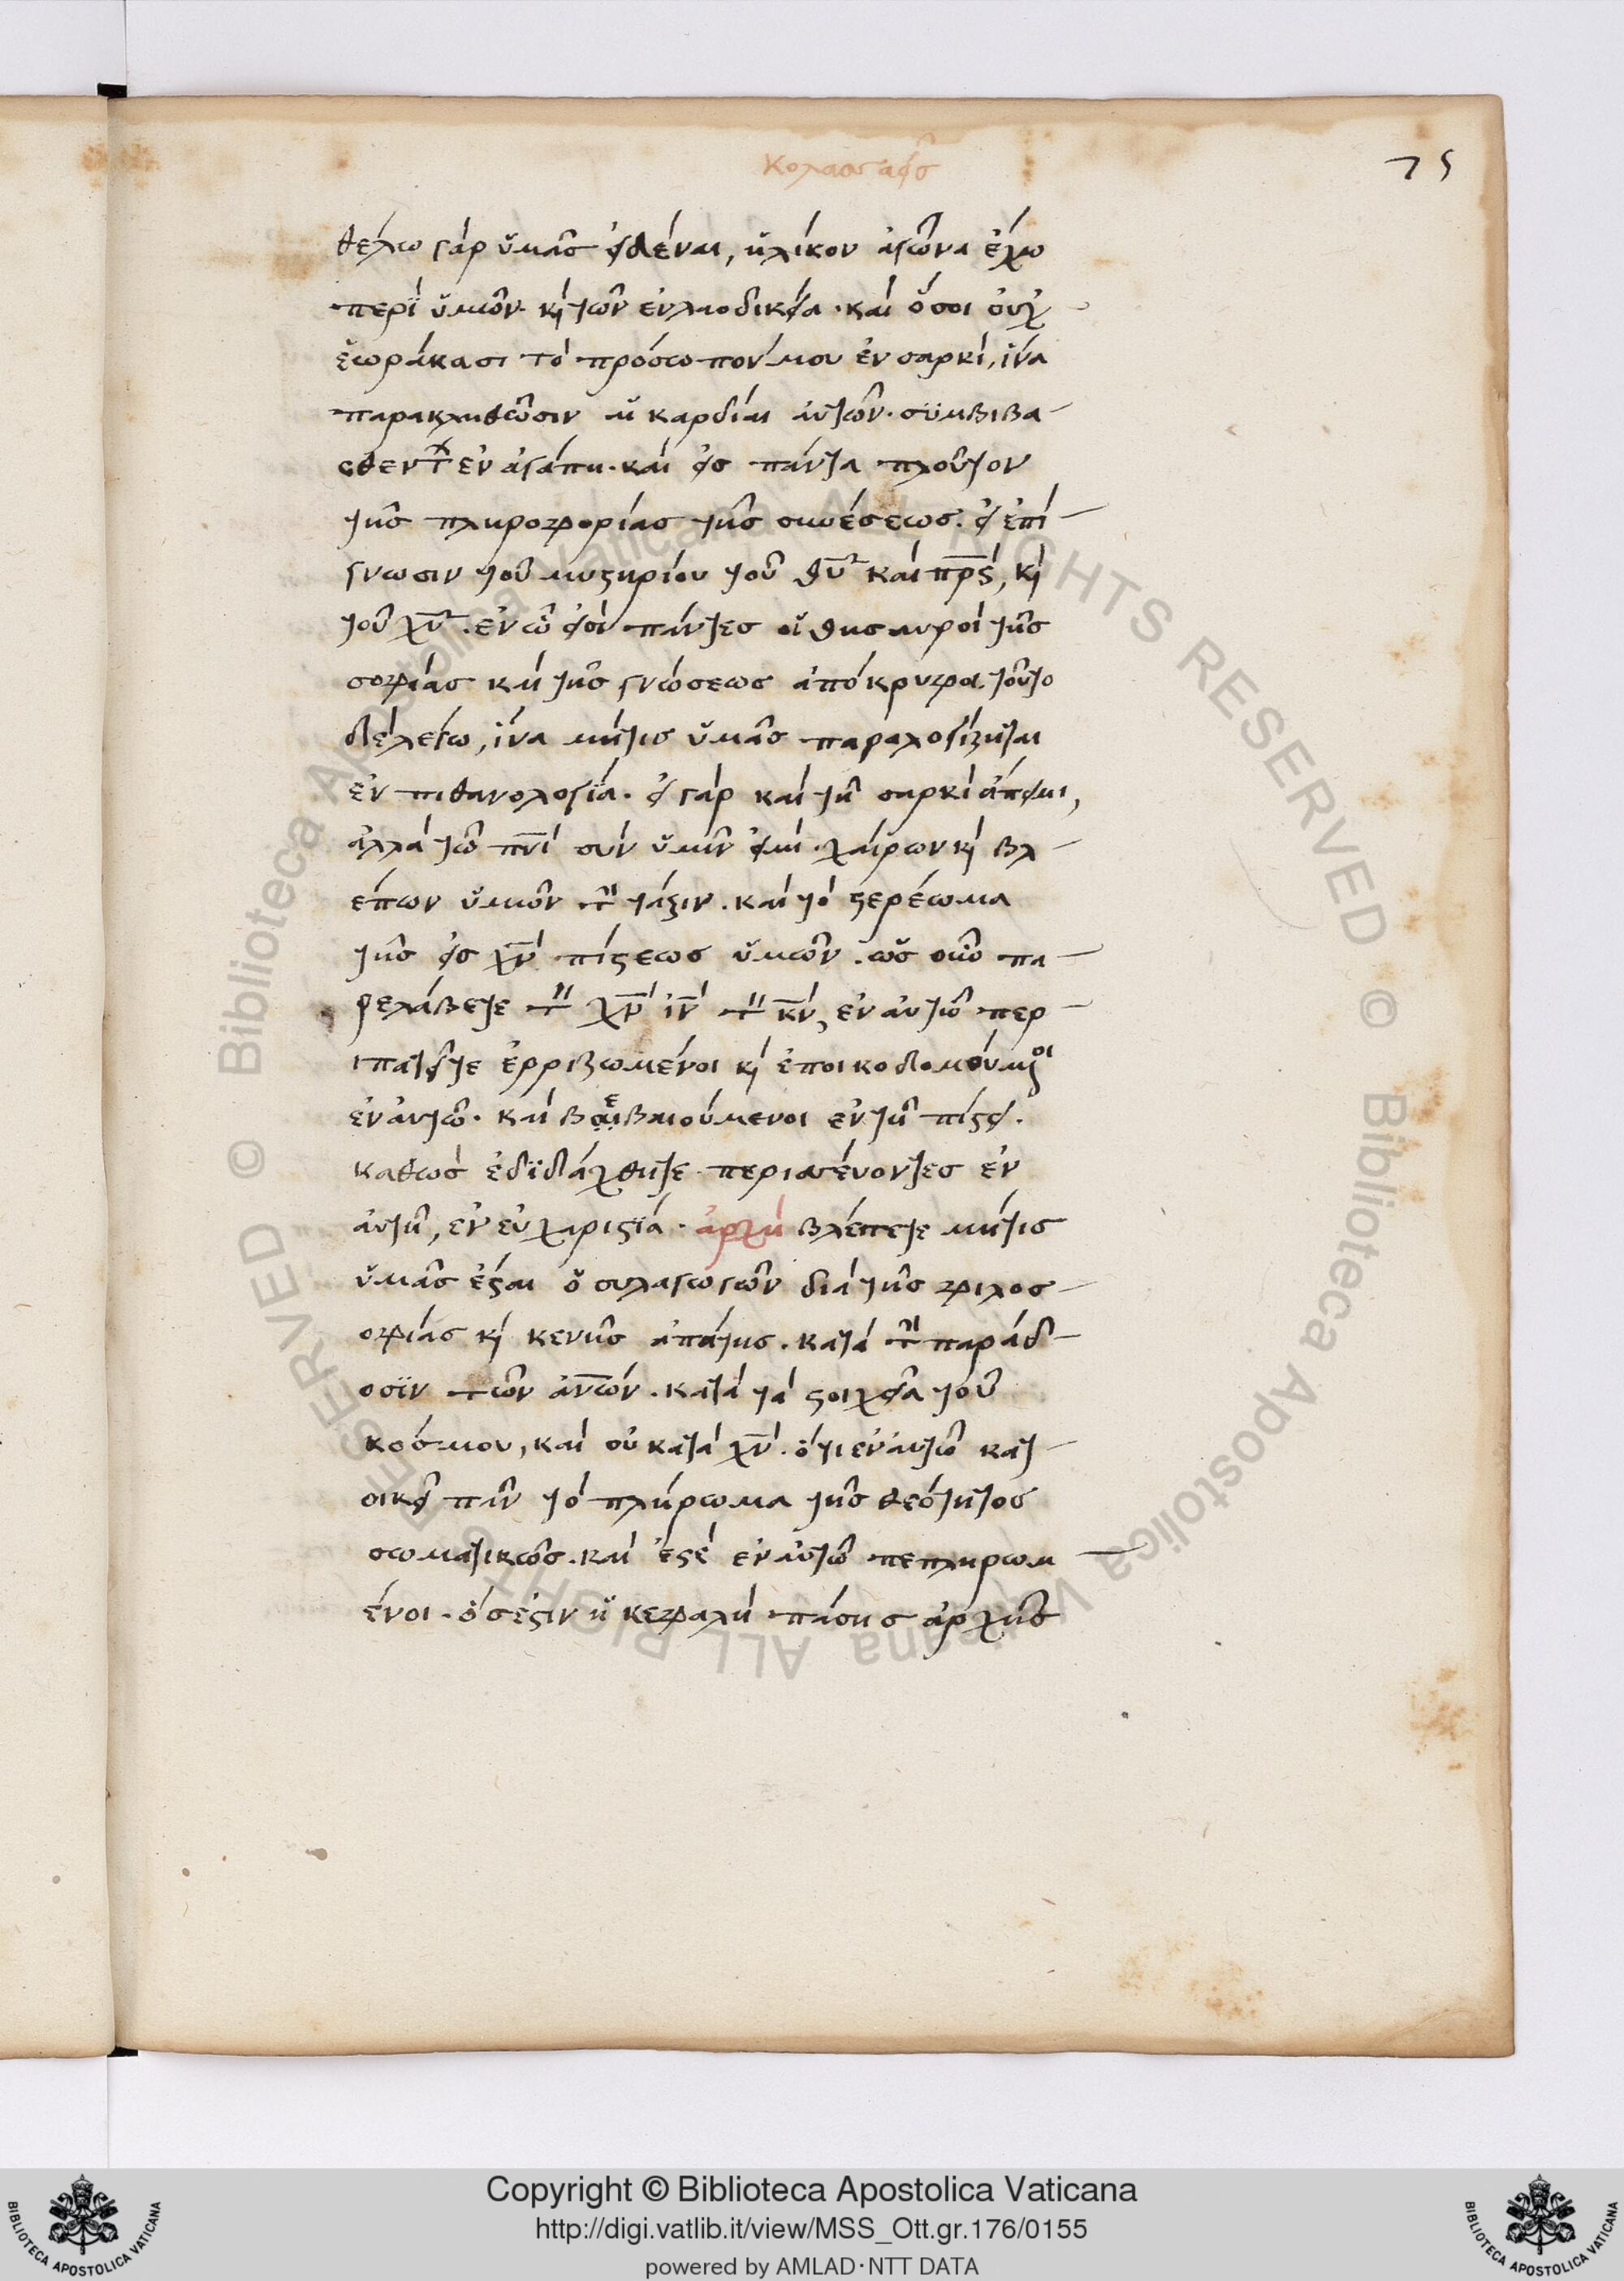 κολασσαεῖς
75
θέλω γὰρ ὑμᾶς εἰδέναι, ἡλίκον ἀγῶνα ἔχω
περὶ ὑμῶν. κὶ τῶν ἐν λαοδικεία. καὶ ὅσοι οὐχ
ἑωράκασι τὸ πρόσωπόν μου ἐν σαρκὶ, ἵνα
παρακληθῶσιν αἱ καρδίαι αὐτῶν. συμβιβα
σθεντ ἐν ἀγάπη. καὶ εἰς πάντα πλοῦτον
τῆς πληροφορίας τῆς συνέσεως. εἰ ἐπί
γνωσιν τοῦ μυστηρίου τοῦ θυ καὶ πρς, κὶ
τοῦ χυ. ἐν ὧ εἰσὶ πάντες οἱ θησαυροὶ τῆς
σοφίας καὶ τῆς γνώσεως ἀπόκρυφοι. τοῦτο
δὲ λέγω, ἵνα μήτις ὑμᾶς παραλογίζηται
ἐν πιθανολογία. εἰ γὰρ καὶ τῆ σαρκὶ ἄπειμι,
ἀλλὰ τῶ πνι σὺν ὑμῖν εἰμὶ. χαίρων κὶ βλ
έπων ὑμῶν τὴν τάξιν. καὶ τὸ στερέωμα
τῆς εἰς χν πίστεως ὑμῶν. ὡς οὖν πα
ρελάβετε τὸν χν ιν τὸν κν, ἐν αὐτῶ περ
ιπατεῖτε ἐρριζωμένοι κὶ ἐποικοδομούμενοι
ἐν αὐτῶ. καὶ βαιεβαιούμενοι ἐν τῆ πίστει.
καθὼς ἐδιδάχθητε περισσεύοντες ἐν
αὐτῆ, ἐν εὐχαριστία. ἀρχὴ βλέπετε μήτις
ὑμᾶς ἔσται ὁ συλαγωγῶν διὰ τῆς φιλοσ
οφίας κὶ κενῆς ἀπάτης. κατὰ τὴν παράδ
οσιν τῶν ανων. κατὰ τὰ στοιχεῖα τοῦ
κόσμου, καὶ οὐ κατὰ χν. ὅτι ἐν αὐτῶ κατ
οικεῖ πᾶν τὸ πλήρωμα τῆς θεότητος
σωματικῶς. καὶ ἐστὲ ἐν αὐτῶ πεπληρωμ
ένοι. ὅς ἐστιν ἡ κεφαλὴ πάσης ἀρχῆς
© Biblioteca Apostolica Vaticana ALL RIGHTS RESERVED
© Biblioteca Apostolica Vaticana ALL RIGHTS RESERVED
Copyright © Biblioteca Apostolica Vaticana
http://digi.vatlib.it/view/MSS_Ott.gr.176/0155
powered by AMLAD·NTT DATA
BIBLIOTECA APOSTOLICA VATICANA
BIBLIOTECA APOSTOLICA VATICANA